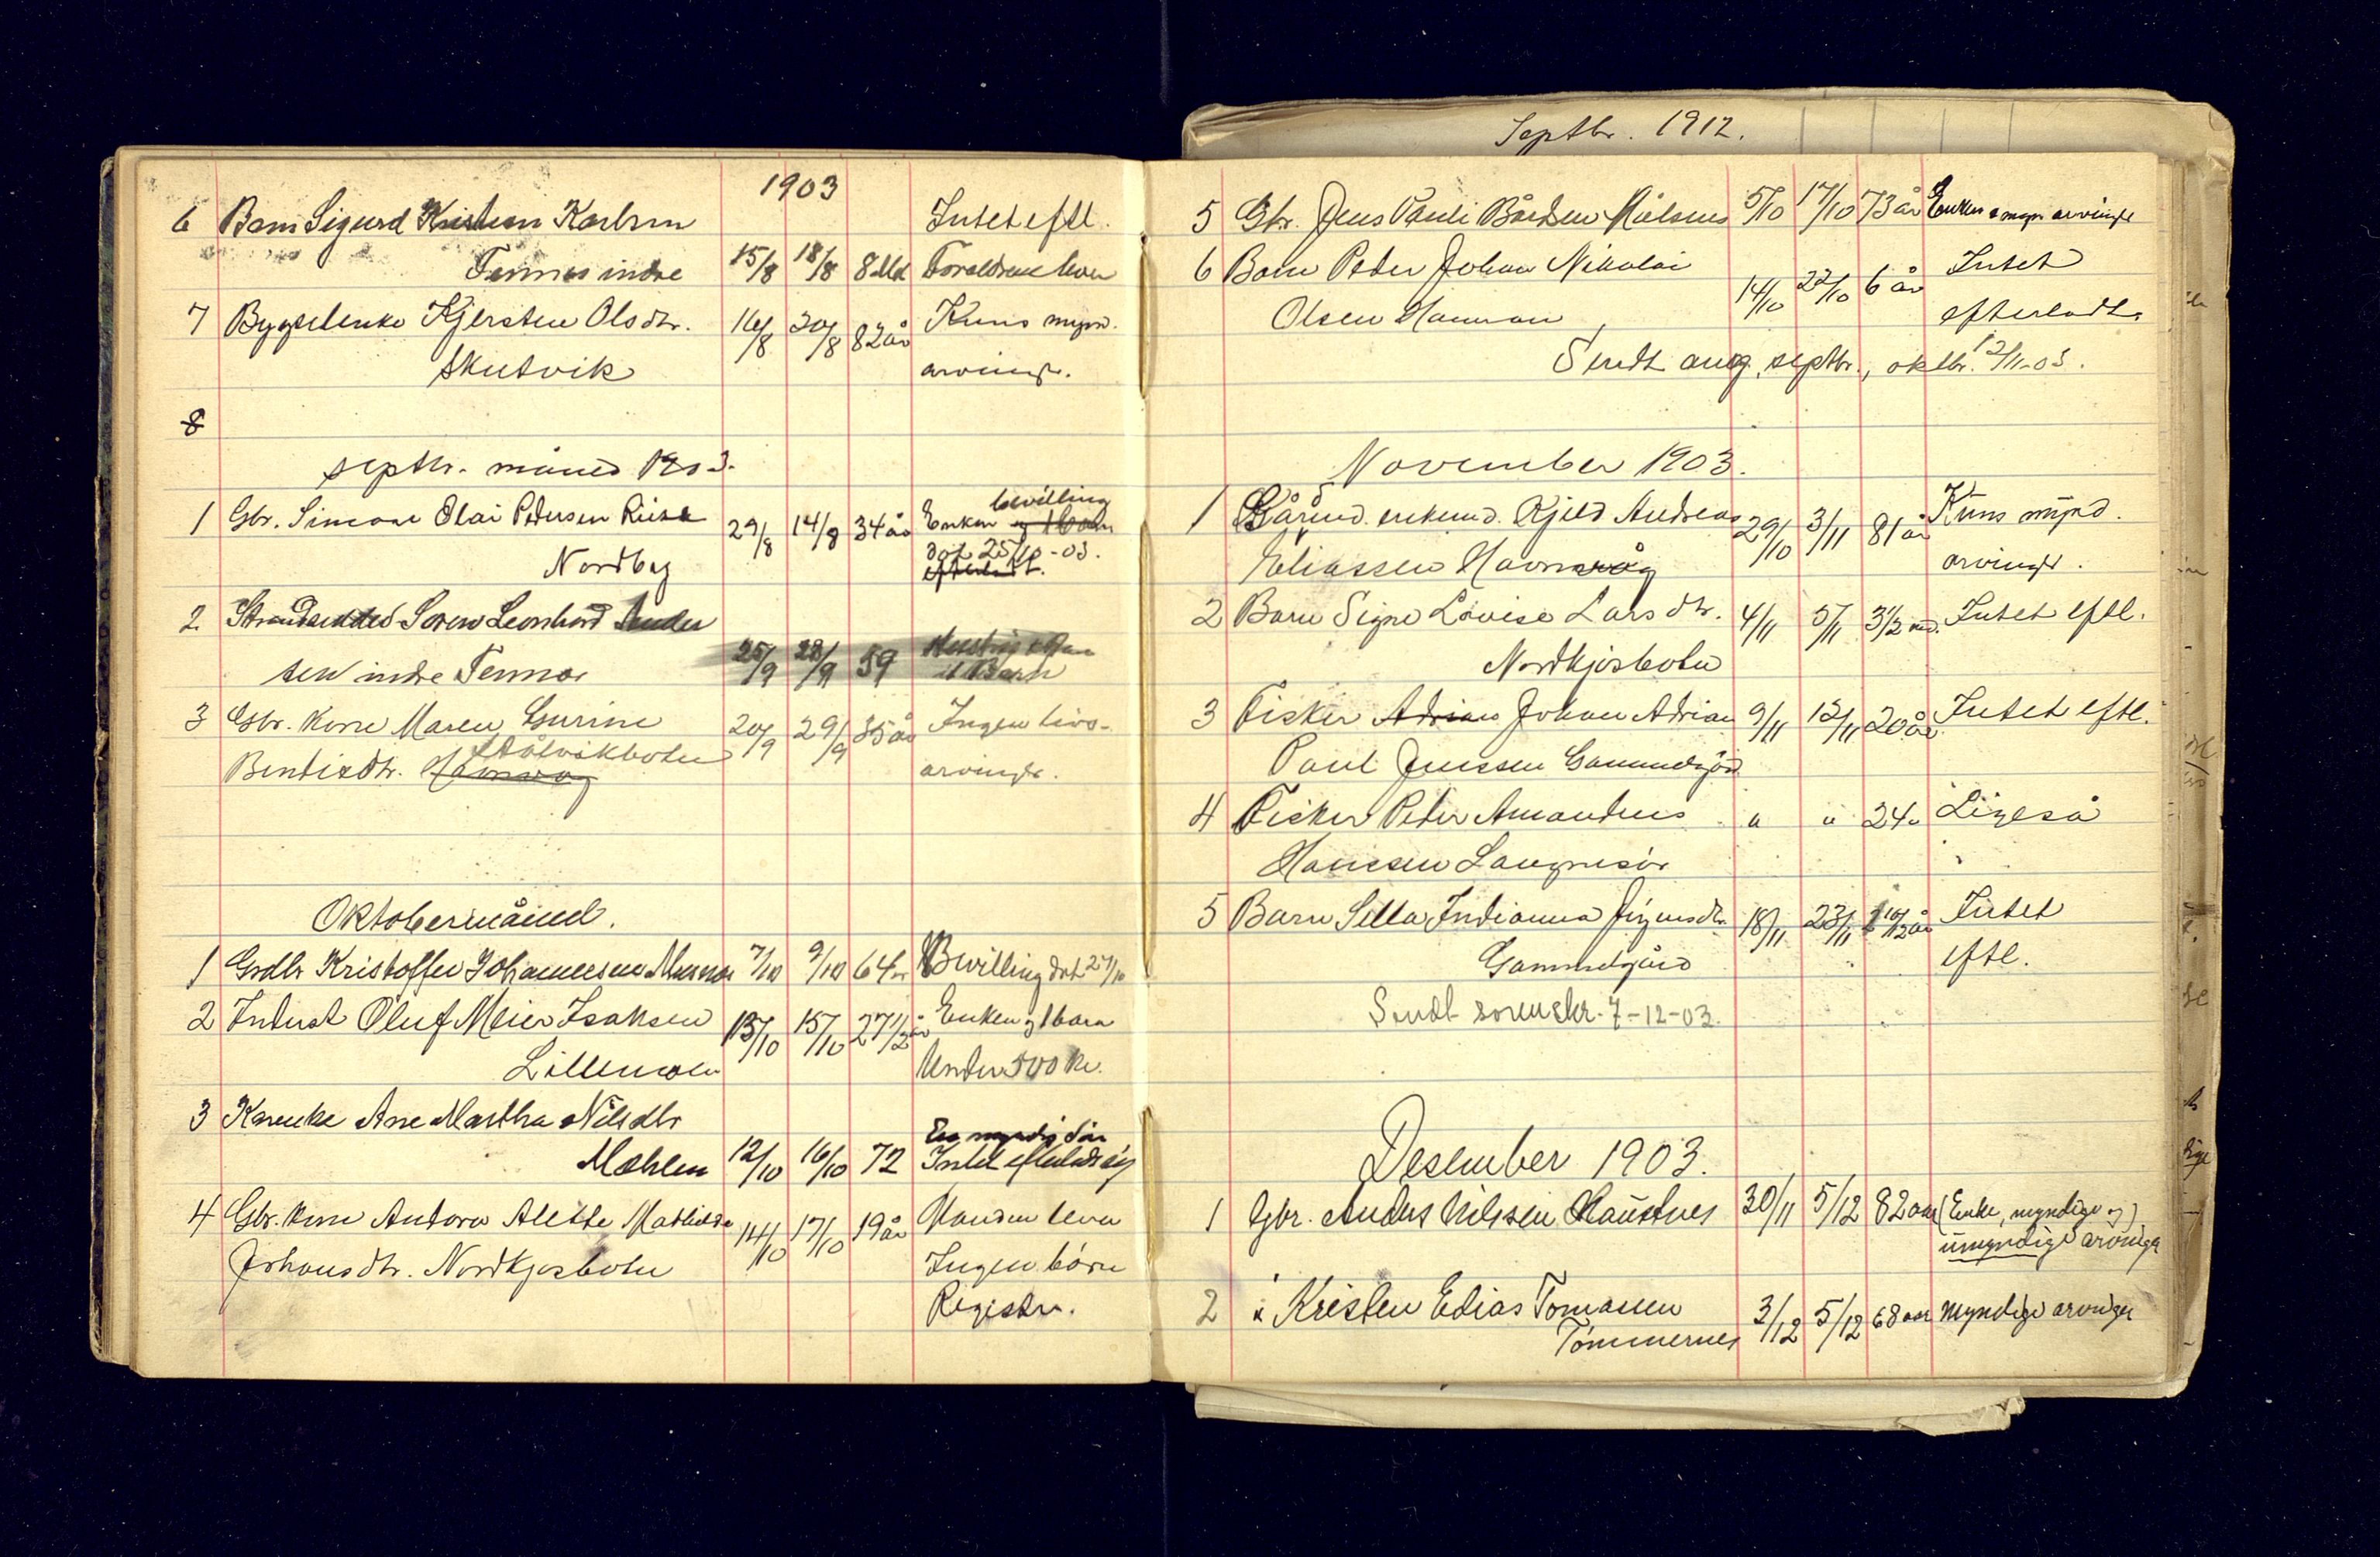 1903
6 Barn Sigurd Kristian Karlsen Intet eftl.
Tennes indre 15/8 18/8 8 Md Forældrene lever
7 Bygselenke Kjersten Olsdtr. 16/8 20/8 82 år Kuns mynd.
Skutvik arvinge.
8
septbr. måned 1903.
1 Gbr. Simon Olai Pedersen 29/8 14/8 34 år Enken bevilling
Nordby dat 25/10-03.
efterladt.
2 Strandsidder Søren Leonhard Ander
sen indre Tennes 25/9 28/9 59
1 Barn
3 Gbr. kone Maren Gurine 20/9 29/9 35 år Ingen livs-
Målsvikbotn
Bentixdtr. Havnvåg arvinge.
Oktobermåned.
1 Grdbr Kristoffer Johannesen 7/10 9/10 64 år Bevilling dat 27/10
2 Inderst Oluf Meier Isaksen 13/10 15/10 27 1/2 år Enken og 1 barn
Lillemoen Under 500 kr.
3 Karenke Ane Martha Nilsdtr
En myndig søn
Mohlen 12/10 16/10 72 Intet efterladt sig
4 Gbr. kone Antora Alette Mathilde 14/10 17/10 19 år Manden lever
Johansdtr. Nordkjosbotn Ingen børn
Registr.
Septbr. 1912.
5 Gbr. Jens Pauli Bårdsen Målsnes 5/10 17/10 73 år Enken & mynd arvinge
6 Barn Peder Johan Nikolai 14/10 22/10 6 år Intet
Olsen efterladt.
Sendt aug, septbr., oktbr. 12/11-03.
November 1903.
1 Kårmd. enkemd. Kjeld Andreas 29/10 3/11 81 år Kuns mynd.
Eliassen Havnvåg arvinge.
2 Barn Signe Lovise Larsdtr. 4/11 5/11 3 1/2 md. Intet eftl.
Nordkjosbotn
3 Fisker Adrian Johan Adrian 9/11 12/11 20 år Intet eftl.
Paul Jenssen Gammelgård
4 Fisker Peder Amandus " " 24 " Ligeså
Hanssen Langnesør
5 Barn Sella Indianna Jørgensdtr 18/11 23/11 10/12 år Intet
Gammelgård eftl.
Sendt sorenskr. 7-12-03.
Desember 1903.
1 Gbr. Anders Nilssen Haustnes 30/11 5/12 82 aar (Enke, myndige og)
umyndige arvinger
2 " Kristen Edias Tomassen 3/12 5/12 68 aar Myndige arvinger
Tømmernes